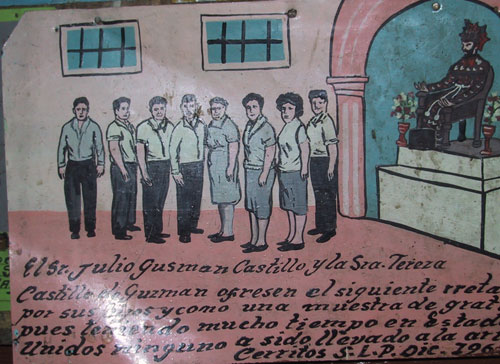 El Sr. Julio Gusman Castillo y la Sra. Tereza
Castillo de Guzman ofresen el siguiente rreta
por sus y como una muestra de grat
pues teniendo mucho tiempo en Estad
Unidos ninguno a sido llevado a la
Cerritos S.L.P. Dic.